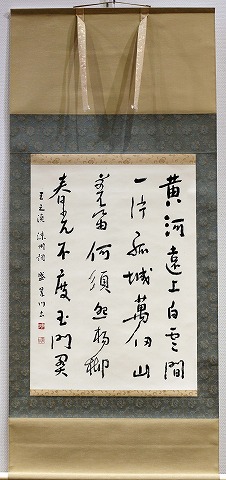 黄河遠上白雲間
一片孤城萬仞山
羌笛何須怨楊柳
春光不度玉門関
王之渙 涼州詞